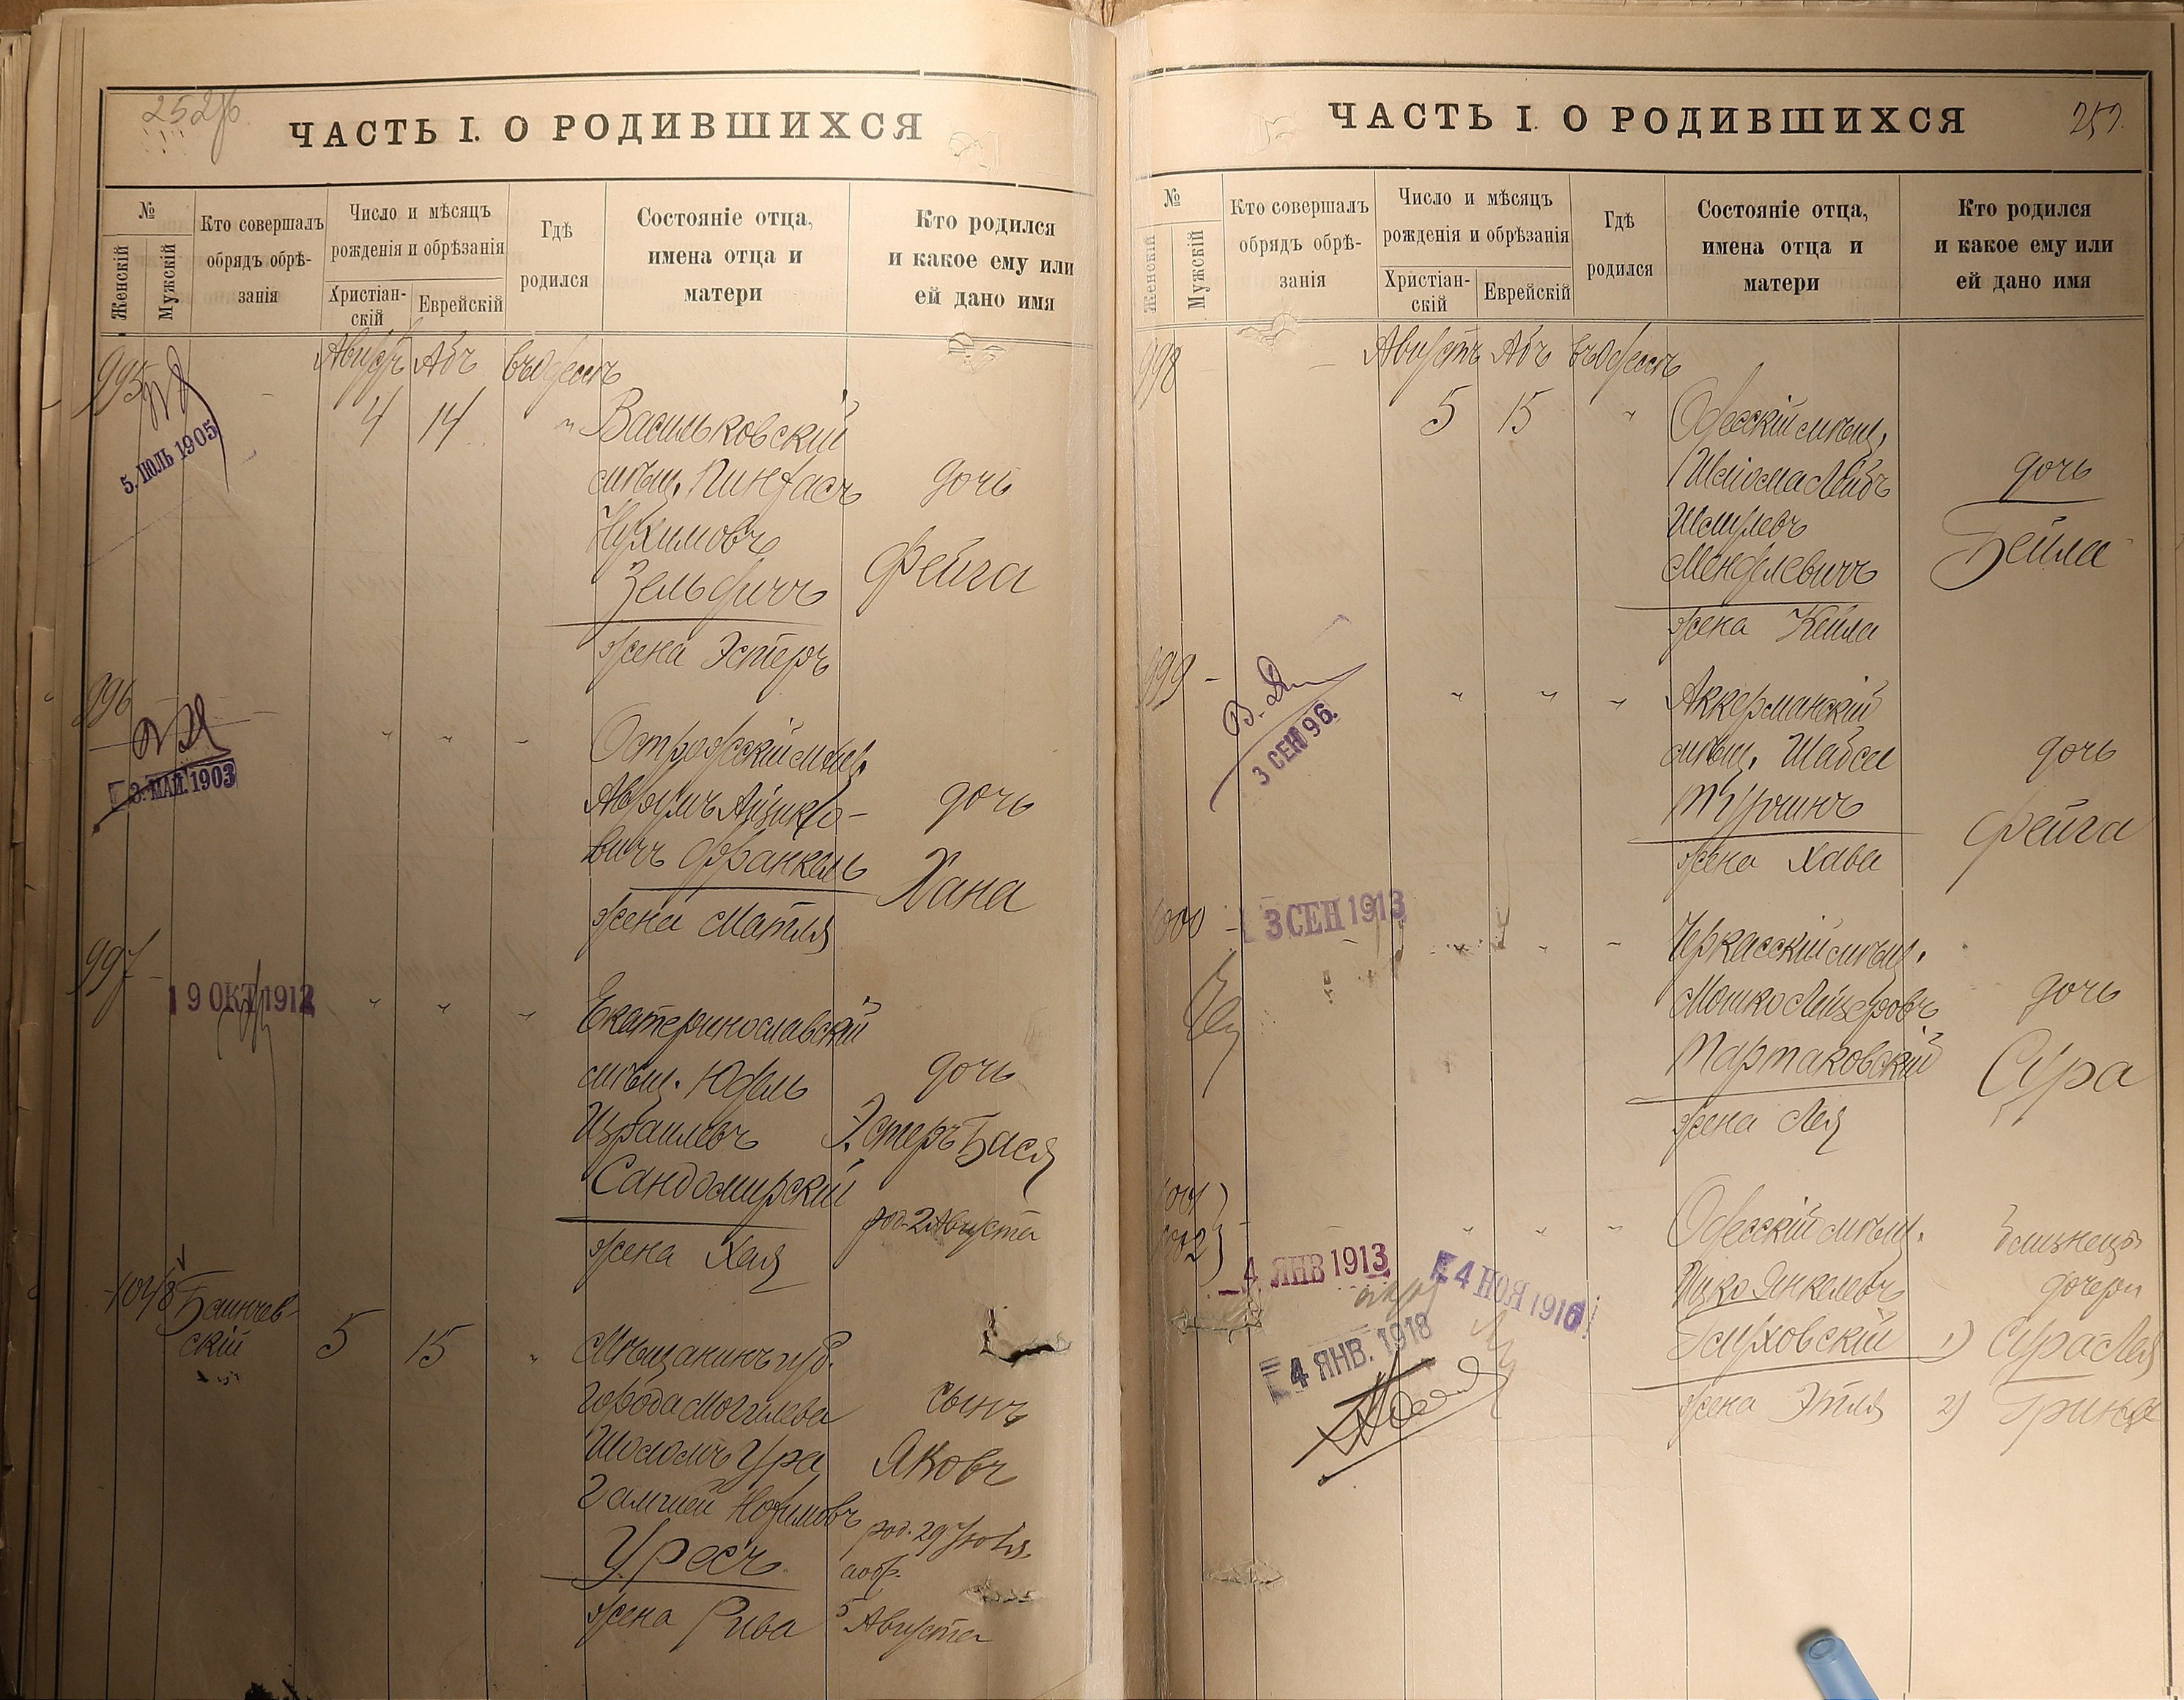 252об.
ЧАСТЬ I. О РОДИВШИХСЯ
№
Женскій
Мужскій
Кто совершалъ
обрядъ обрѣ-
занія
Число и мѣсяцъ
рожденія и обрѣзанія
Христіан-
скій
Еврейскій
Гдѣ
родился
Состояніе отца,
имена отца и
матери
Кто родился
и какое ему или
ей дано имя
995
5. ІЮЛЬ 1905
Августъ Абъ въ Одессѣ
4 14 " Васильковскій
мѣщ. Пинхасъ дочь
Нухимовъ
Фейга
жена Эстеръ
996
3. МАЙ. 1903
" " "
Острожскій мѣщ.
Аврумъ Айзико-
вичъ Франкель
дочь
Хана
жена Матля
997 -
19 ОКТ 1912
" " "
Екатеринославскій
мѣщ. Юдель дочь
Израилевъ Эстеръ Бася
Сандомирскій
род. 2 Августа
жена Хая
1048
5 15 " Мѣщанинъ губ.
города Могилева сынъ
Яковъ
Уресъ
род. 29 Іюля
жена Рива 5 Августа
ЧАСТЬ I. О РОДИВШИХСЯ
253.
№
Женскій
Мужскій
Кто совершалъ
обрядъ обрѣ-
занія
Число и мѣсяцъ
рожденія и обрѣзанія
Христіан-
скій
Еврейскій
Гдѣ
родился
Состояніе отца,
имена отца и
матери
Кто родился
и какое ему или
ей дано имя
998
Августъ Абъ въ Одессѣ
5 15 " Одесскій мѣщ.
Шлиома Лейбъ дочь
Шмулевъ
Менделевичъ
Бейла
жена Кейла
999 -
3 СЕН 96.
" " "
Аккерманскій
мѣщ. Шабси дочь
Турчинъ
Фейга
жена Хава
1000 -
3 СЕН 1913
Черкасскій мѣщ.
Мошко Лейзеровъ дочь
Тартаковскій Сура
жена Лея
1001
1002
4 ЯНВ 1913
4 НОЯ 1916
4 ЯНВ. 1918
" " "
Одесскій мѣщ. близнецы
Ицко Янкелевъ дочери
Глуховскій 1) Сура Лея
жена Этля 2)